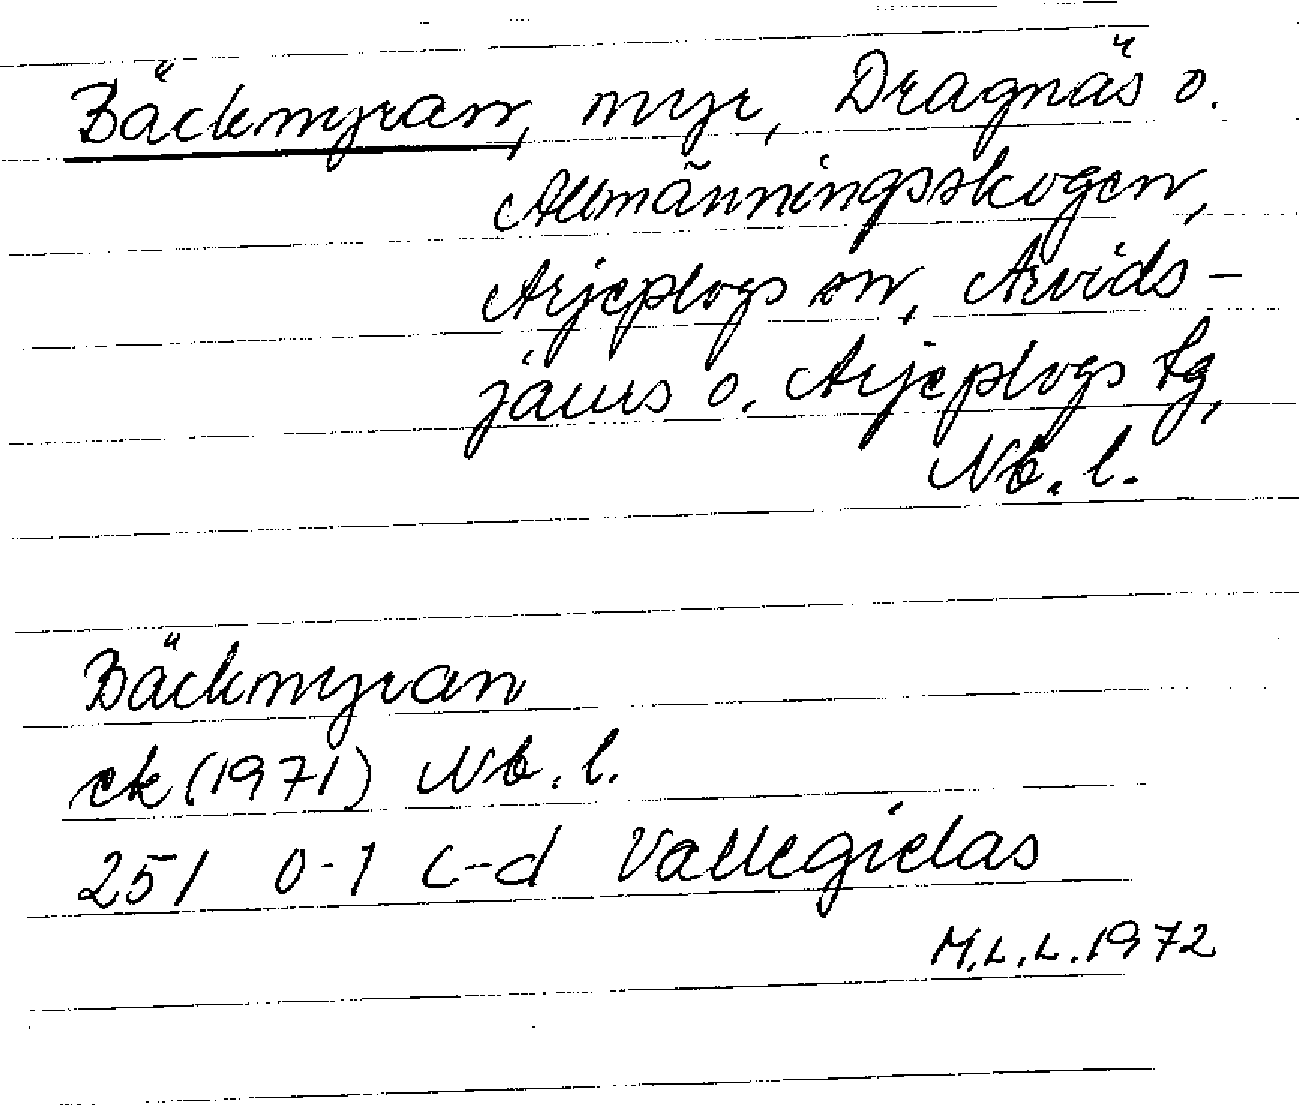 Bäckmyran, myr, Dragnäs o.
Allmänningsskogen,
Arjeplogs sn, Arvids-
jaurs o. Arjeplogs tg,
Nb. l.
Bäckmyran
ek (1971) Nb. l.
251 0-1 c-d Vallegielas
M.L.L. 1972